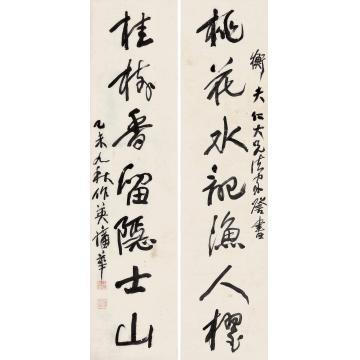 衡夫仁大兄法
桃花水記漁人櫂
桂樹香留隱士山
乙未九秋作英蒲華